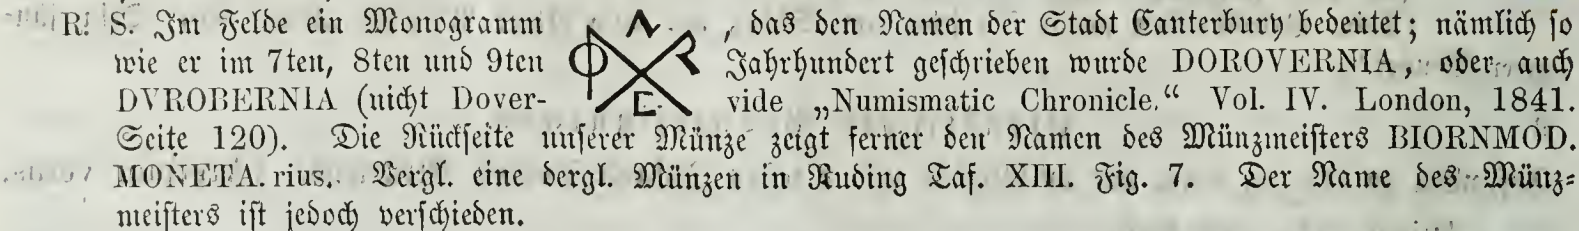 R. S. Im Felde ein Monogramm , das den Namen der Stadt Canterbury bedeutet; nämlich so
wie er im 7ten, 8ten und 9ten Jahrhundert geschrieben wurde DOROVERNIA, oder auch
DVROBERNIA (nicht Dover- vide „Numismatic Chronicle.“ Vol. IV. London, 1841.
Seite 120). Die Rückseite unserer Münze zeigt ferner den Namen des Münzmeisters BIORNMOD.
MONETA. rius. Vergl. eine dergl. Münzen in Ruding Taf. XIII. Fig. 7. Der Name des Münz-
meisters ist jedoch verschieden.